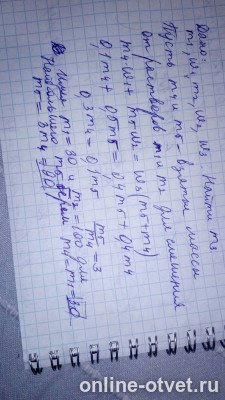 Дано:
m₁, ω₁, m₂, ω₂, ω₃. Найти m₃
Пусть m₄ и m₅ - взятые массы
от растворов m₁ и m₂ для смешения
m₄ω₁ + m₅ω₂ = ω₃(m₅+m₄)
0,1m₄ + 0,5m₅ = 0,4m₅ + 0,4m₄
0,3m₄ = 0,1m₅
m₅/m₄ = 3
m₁ = 30 и m₂ = 100 для
наибольшего берем m₄ = m₁ = 30
online-otvet.ru